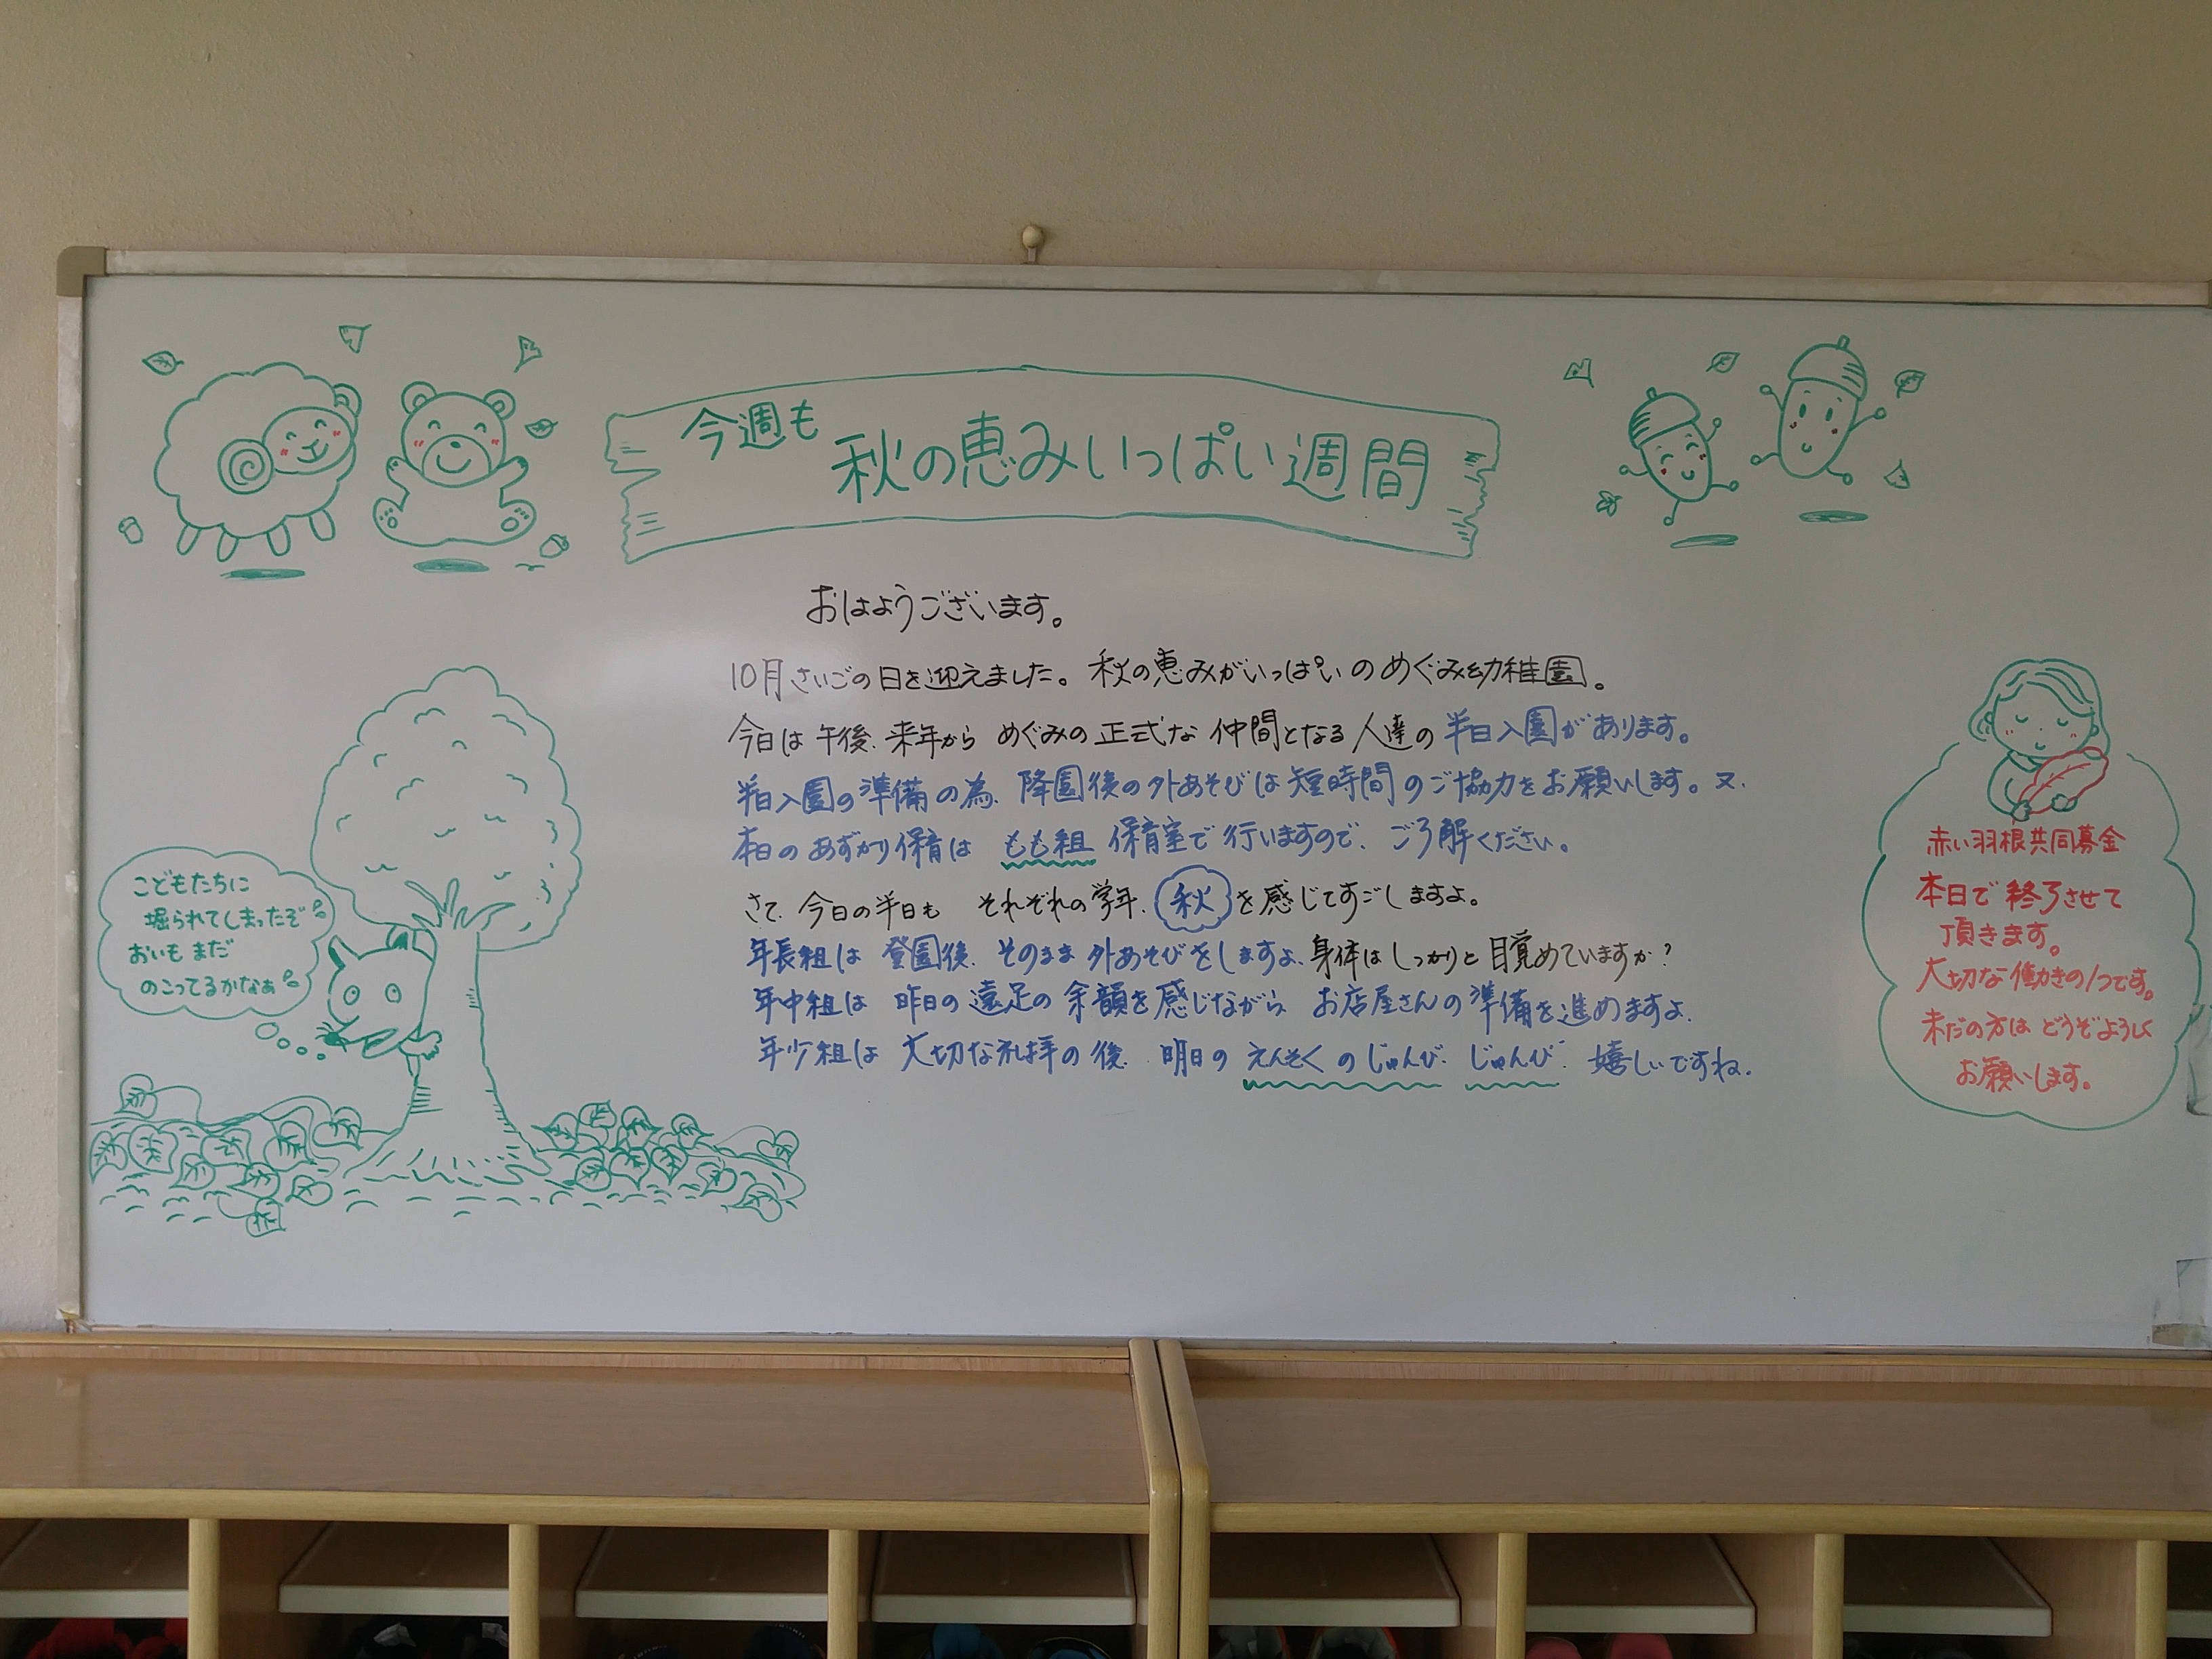 今週も
秋の恵みいっぱい週間
おはようございます。
10月さいごの日を迎えました。秋の恵みがいっぱいのめぐみ幼稚園。
今日は午後、来年から めぐみの正式な仲間となる人達の半日入園があります。
半日入園の準備の為、降園後の外あそびは短時間のご協力をお願いします。又、
本日のあずかり保育は もも組 保育室で行いますので、ご了解ください。
さて、今日の半日も それぞれの学年、秋を感じてすごしますよ。
年長組は 登園後、そのまま外あそびをしますよ、身体はしっかりと目覚めていますか?
年中組は 昨日の遠足の余韻を感じながら お店屋さんの準備を進めますよ、
年少組は 大切な礼拝の後、明日の えんそくのじゅんび、じゅんび、嬉しいですね。
こどもたちに
掘られてしまったぞ
おいも まだ
のこってるかなぁ
赤い羽根共同募金
本日で終了させて
頂きます。
大切な働きの1つです。
未だの方は どうぞよろしく
お願いします。